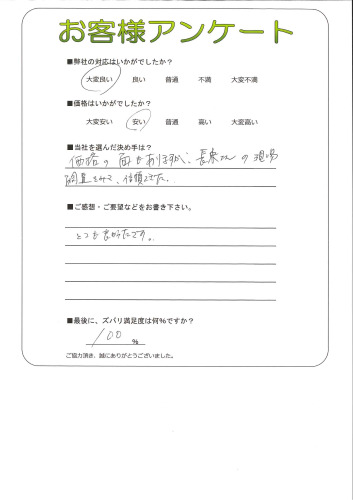 お客様アンケート
■弊社の対応はいかがでしたか?
大変良い 良い 普通 不満 大変不満
■価格はいかがでしたか?
大変安い 安い 普通 高い 大変高い
■当社を選んだ決め手は?
価格の面もありますが、長束さんの現場
調査をみて、信頼できた。
■ご感想・ご要望などをお書き下さい。
とても良かったです。
■最後に、ズバリ満足度は何%ですか?
100 %
ご協力頂き、誠にありがとうございました。